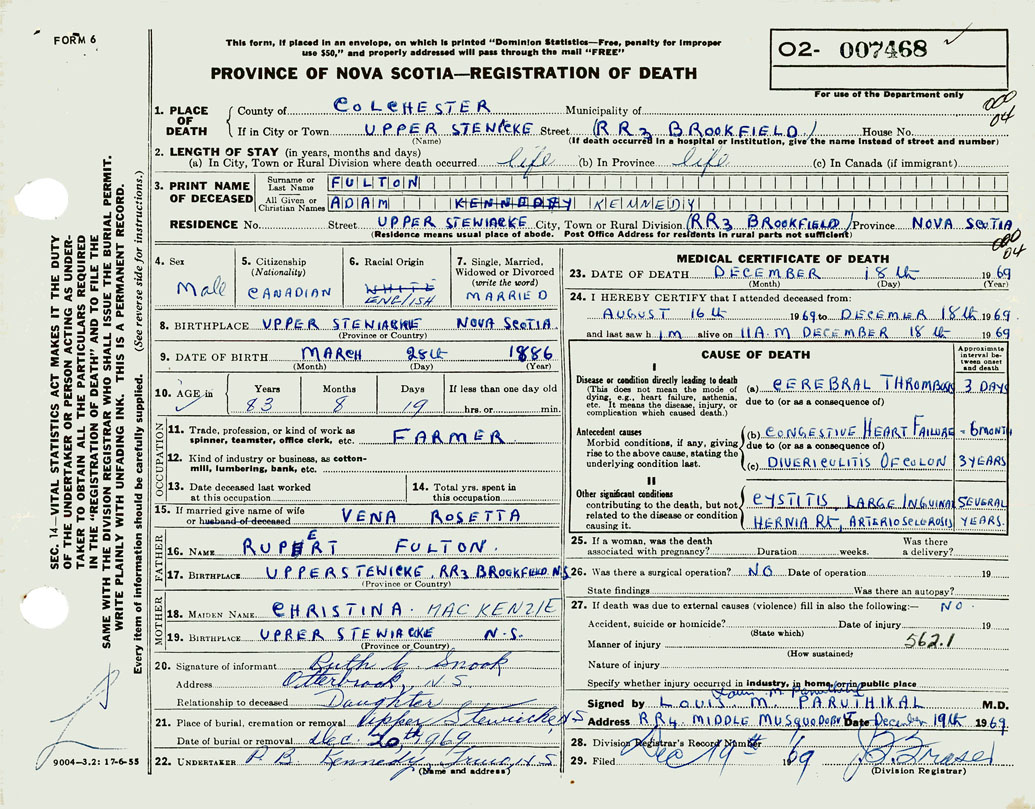 FORM 6
This form, if placed in an envelope, on which is printed "Dominion Statistics—Free, penalty for improper
use $50," and properly addressed will pass through the mail "FREE"
PROVINCE OF NOVA SCOTIA—REGISTRATION OF DEATH
O2- 007468
For use of the Department only
000
04
SEC. 14—VITAL STATISTICS ACT MAKES IT THE DUTY
OF THE UNDERTAKER OR PERSON ACTING AS UNDER-
TAKER TO OBTAIN ALL THE PARTICULARS REQUIRED
IN THE "REGISTRATION OF DEATH" AND TO FILE THE
SAME WITH THE DIVISION REGISTRAR WHO SHALL ISSUE THE BURIAL PERMIT.
WRITE PLAINLY WITH UNFADING INK. THIS IS A PERMANENT RECORD.
Every item of information should be carefully supplied. (See reverse side for instructions.)
1. PLACE OF DEATH
County of COLCHESTER Municipality of
If in City or Town UPPER STENICKE Street (RR3 BROOKFIELD) House No.
(Name) (If death occurred in a hospital or institution, give the name instead of street and number)
2. LENGTH OF STAY (in years, months and days)
(a) In City, Town or Rural Division where death occurred life (b) In Province life (c) In Canada (if immigrant)
3. PRINT NAME OF DECEASED
Surname or Last Name FULTON
All Given or Christian Names ADAM KENNDDY KENNEDY
RESIDENCE No. Street UPPER STEWIACKE City, Town or Rural Division (RR3 BROOKFIELD) Province NOVA SCOTIA
(Residence means usual place of abode. Post Office Address for residents in rural parts not sufficient)
000
04
4. Sex Male
5. Citizenship (Nationality) CANADIAN
6. Racial Origin WHITE ENGLISH
7. Single, Married, Widowed or Divorced (write the word) MARRIED
8. BIRTHPLACE UPPER STENIACKE NOVA SCOTIA
(Province or Country)
9. DATE OF BIRTH MARCH 28th 1886
(Month) (Day) (Year)
10. AGE in Years 83 Months 8 Days 19 If less than one day old hrs. or min.
OCCUPATION
11. Trade, profession, or kind of work as
spinner, teamster, office clerk, etc. FARMER
12. Kind of industry or business, as cotton-
mill, lumbering, bank, etc.
13. Date deceased last worked at this occupation
14. Total yrs. spent in this occupation
15. If married give name of wife
or husband of deceased VENA ROSETTA
FATHER
16. NAME RUPERT FULTON.
17. BIRTHPLACE UPPER STENICKE, RR3 BROOKFIELD N.S
(Province or Country)
MOTHER
18. MAIDEN NAME CHRISTINA MACKENZIE
19. BIRTHPLACE UPPER STEWIACKE N.S.
(Province or Country)
20. Signature of informant Ruth G Snook
Address Otterbrook, N S
Relationship to deceased Daughter
21. Place of burial, cremation or removal Upper Stewiacke N S
Date of burial or removal Dec. 20th 1969
22. UNDERTAKER P. B. Kennedy, Truro, N.S
(Name and address)
9004—3.2: 17-6-55
MEDICAL CERTIFICATE OF DEATH
23. DATE OF DEATH DECEMBER 18th 1969
(Month) (Day) (Year)
24. I HEREBY CERTIFY that I attended deceased from:
AUGUST 16th 1969 to DECEMBER 18th 1969.
and last saw him alive on 11A.M DECEMBER 18th 1969
CAUSE OF DEATH
Approximate interval between onset and death
I
Disease or condition directly leading to death
(This does not mean the mode of
dying, e.g., heart failure, asthenia,
etc. It means the disease, injury, or
complication which caused death.)
(a) CEREBRAL THROMBOSIS 3 DAYS
due to (or as a consequence of)
Antecedent causes
Morbid conditions, if any, giving
rise to the above cause, stating the
underlying condition last.
(b) CONGESTIVE HEART FAILURE - 6 MONTH
due to (or as a consequence of)
(c) DIVERICULITIS OF COLON 3 YEARS
II
Other significant conditions
contributing to the death, but not
related to the disease or condition
causing it.
CYSTITIS, LARGE INGUINAL SEVERAL
HERNIA Rt, ARTERIOSCLEROSIS YEARS.
25. If a woman, was the death
associated with pregnancy? Duration weeks. Was there a delivery?
26. Was there a surgical operation? NO Date of operation 19
State findings Was there an autopsy?
27. If death was due to external causes (violence) fill in also the following:— NO
Accident, suicide or homicide? Date of injury 19
(State which)
Manner of injury 562.1
(How sustained)
Nature of injury
Specify whether injury occurred in industry, in home, or in public place
Signed by LOUIS. M. PARUTHIKAL M.D.
Address RR4. MIDDLE MUSQUODOBOIT Date December 19th 1969.
28. Division Registrar's Record Number
29. Filed Dec 19th 1969
(Division Registrar)